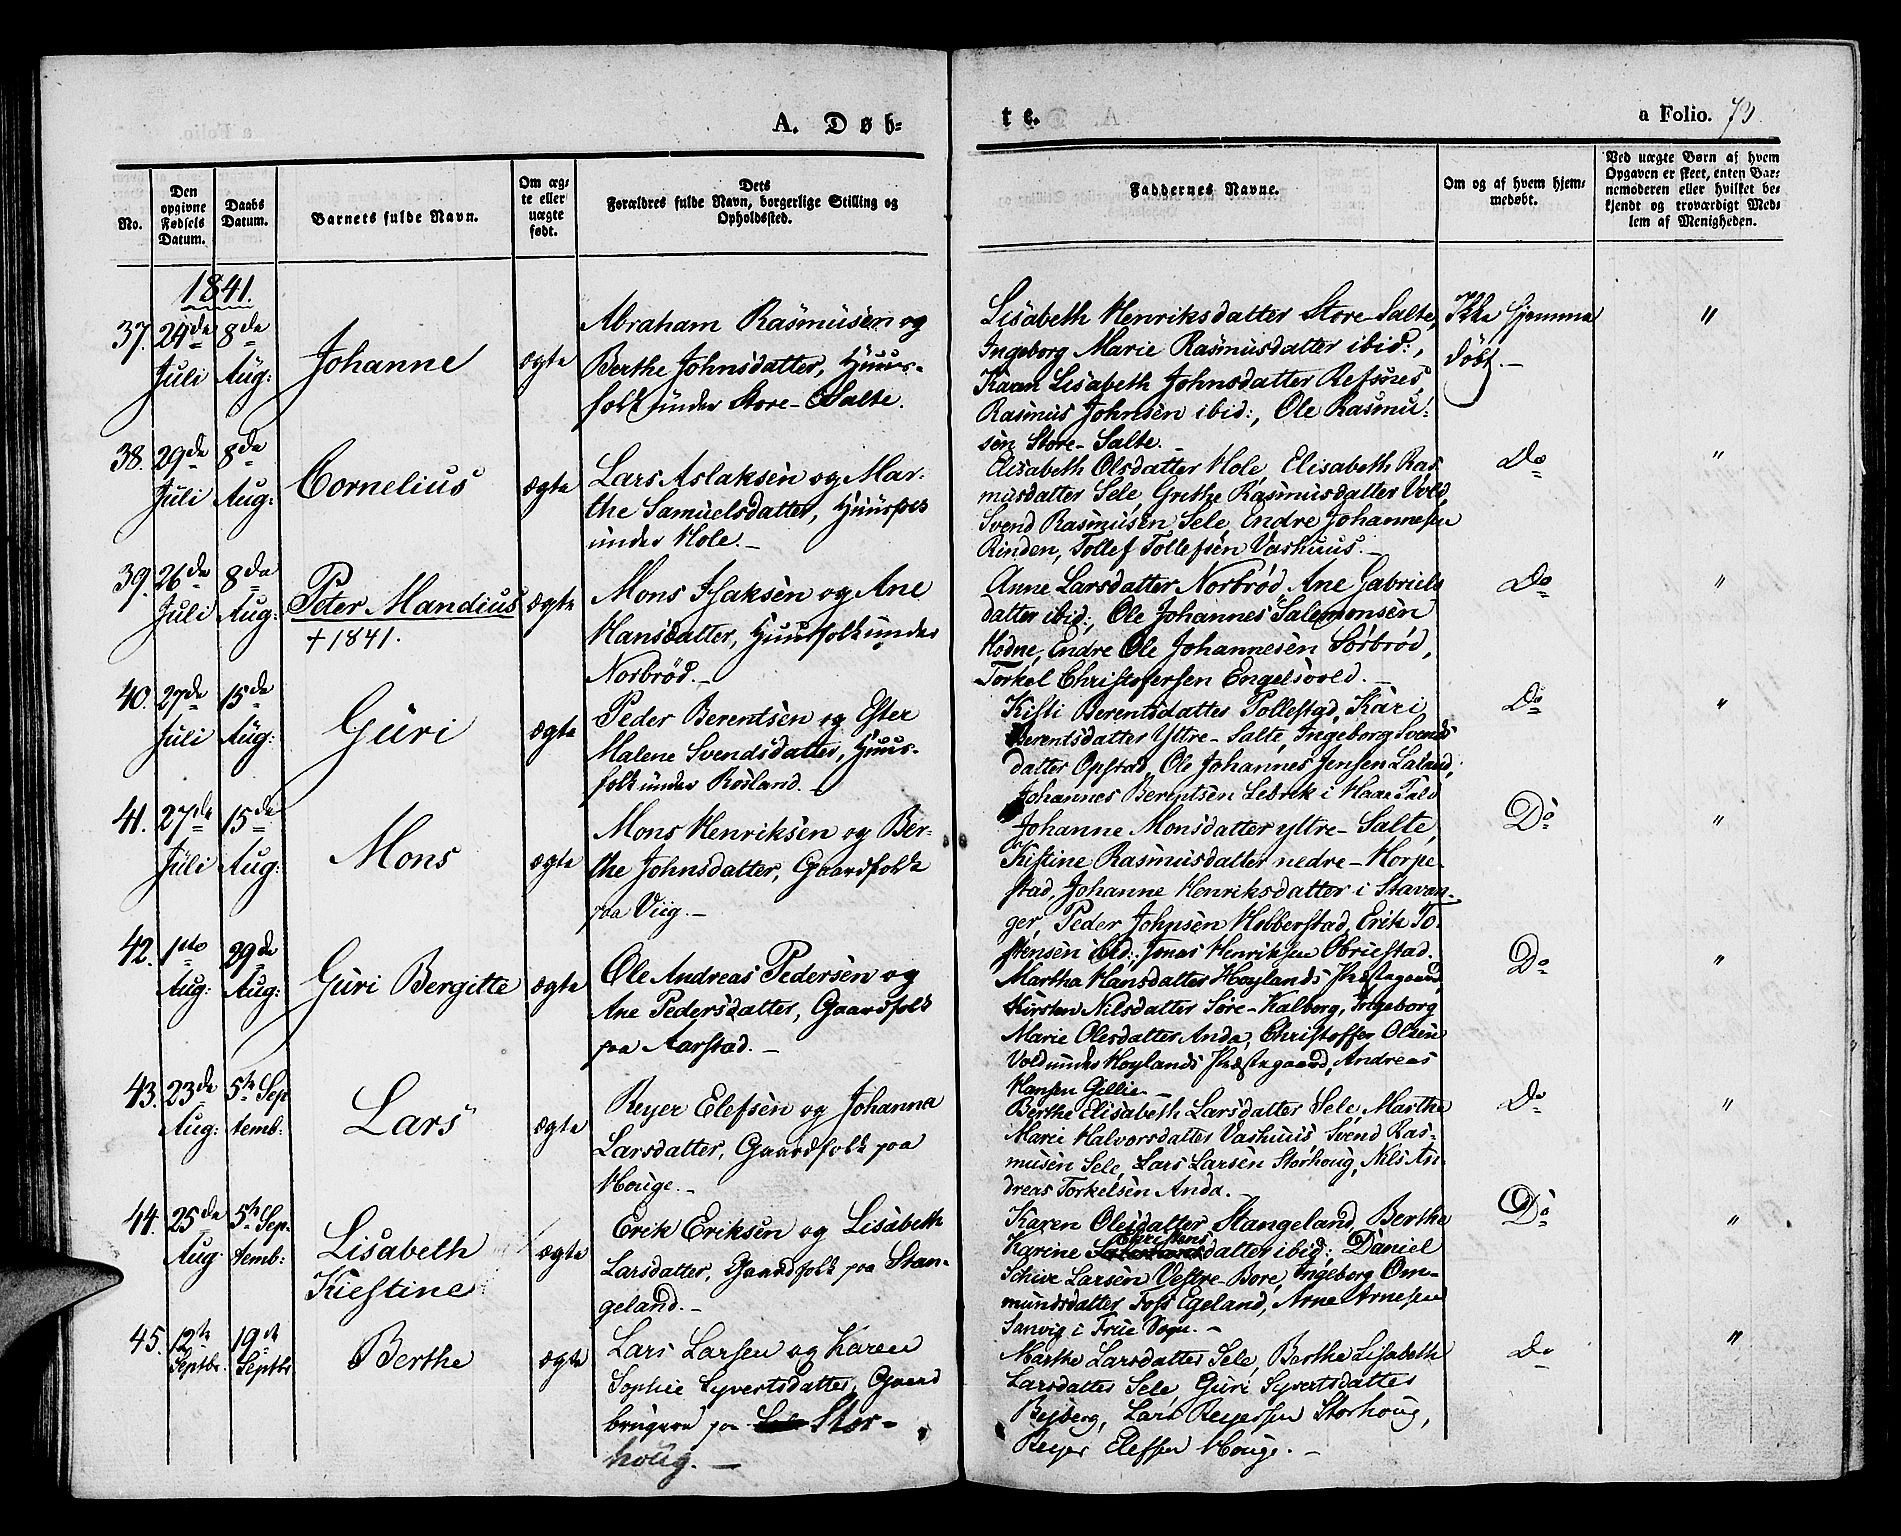 A. Døb-
te.
a Folio. 73.
No.
Den opgivne Fødsels Datum.
Daabs Datum.
Barnets fulde Navn.
Om ægte eller uægte født.
Dets Forældres fulde Navn, borgerlige Stilling og Opholdssted.
Faddernes Navne.
Om og af hvem hjemmedøbt.
Ved uægte Børn af hvem Opgaven er skeet, enten Barnemoderen eller hvilket bekjendt og troværdigt Medlem af Menigheden.
1841.
37. 24de Juli
8de Aug:
Johanne
ægte
Abraham Rasmusen og
Berthe Johnsdatter, Huus-
folk under Store-Salte.
Lisabeth Henriksdatter Store-Salte,
Ingeborg Marie Rasmusdatter ibid:,
Karen Lisabeth Johnsdatter Refsnes,
Rasmus Johnsen ibid:, Ole Rasmu-
sen Store-Salte.
Ikke hjemme
døbt.
"
38. 29de Juli
8de Aug:
Cornelius
ægte
Lars Aslaksen og Mar-
the Samuelsdatter, Huusfolk
under Hole.
Elisabeth Olsdatter Hole, Elisabeth Ras-
musdatter Sele, Grethe Rasmusdatter Vold,
Svend Rasmusen Sele, Endre Johannesen
Rinden, Tollef Tollefsen Vashuus.
Do
"
39. 26de Juli
8de Aug:
Peter Mandius
+ 1841.
ægte
Mons Isaksen og Ane
Hansdatter, Huusfolk under
Norbrød.
Anne Larsdatter Norbrød, Ane Gabriels
datter ibid:, Ole Johannes Salemonsen
Hodne, Endre Ole Johannesen Sørbrød,
Torkel Christofersen Engelsvold.
Do
"
40. 27de Juli
15de Aug:
Guri
ægte
Peder Berentsen og Ester
Malene Svendsdatter, Huus-
folk under Rosland.
Kisti Berentsdatter Pollestad, Kari
Berentsdatter Yttre-Salte, Ingeborg Svends
datter Opstad, Ole Johannes Jensen Laland,
Johannes Berentsen Lebrek i Haae
Do
"
41. 27de Juli
15de Aug:
Mons
ægte
Mons Henriksen og Ber-
the Johnsdatter, Gaardfolk
paa Viig.
Johanne Monsdatter yttre-Salte,
Kistine Rasmusdatter nedre-Horpe-
stad, Johanne Henriksdatter i Stavan-
ger, Peder Johnsen Hobberstad, Erik To-
stensen ibid:, Jonas Henriksen Obrestad.
Do
"
42. 1ste Aug:
29de Aug:
Guri Bergitte
ægte
Ole Andreas Pedersen og
Ane Pedersdatter, Gaardfolk
paa Aarstad.
Martha Hansdatter Hoylands Præstegaard
Kirsten Nilsdatter Søre-Kalberg, Ingeborg
Marie Olesdatter Anda, Christoffer Olsen
Vold under Hoylands Præstegaard, Andreas
Hansen Gillie.
Do
"
43. 23de Aug:
5te Septemb:
Lars
ægte
Reyer Elefsen og Johanna
Larsdatter, Gaardfolk paa
Houge.
Berthe Elisabeth Larsdatter Sele, Marthe
Marie Halvorsdatter Vashuus Svend Ras-
musen Sele, Lars Larsen Storhoug, Nils An-
dreas Torkelsen Anda.
Do
"
44. 25de Aug
5te Septemb:
Lisabeth
Kiestine
ægte
Erik Eriksen og Lisabeth
Larsdatter, Gaardfolk paa Stan-
geland.
Karen Olesdatter Stangeland, Berthe
Karine Christensdatter ibid:, Daniel
Schive Larsen Vestre-Bore, Ingeborg Om-
mundsdatter Foss Egeland, Arne Arnesen
Sanvig i Frue Sogn.
Do
"
45. 12te Septbr.
19de Septbr
Berthe
ægte
Lars Larsen og Karen
Sophie Syvertsdatter, Gaard
brugere paa Stor-
houg.
Marthe Larsdatter Sele, Berthe Lisabeth
Larsdatter Sele, Guri Syvertsdatter
Bejberg, Lars Reyersen Storhoug,
Reyer Elefsen Houge.
Do
"